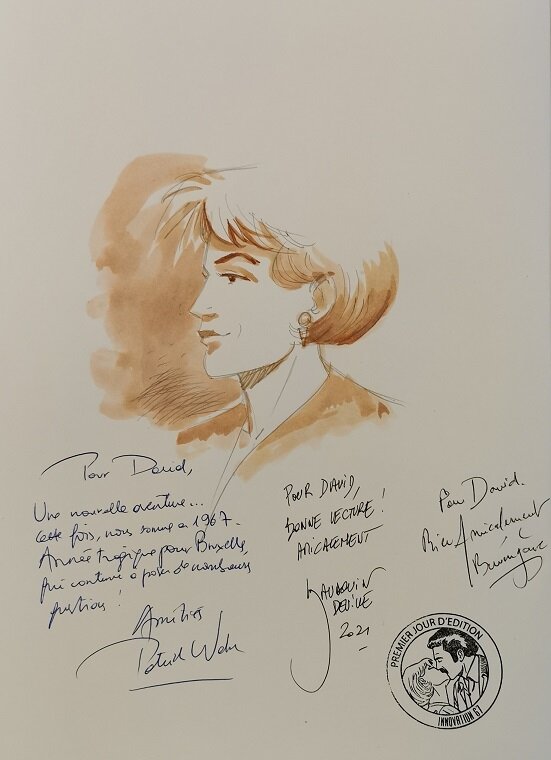 Pour David,
Une nouvelle aventure...
Cette fois, nous sommes à 1967.
Année tragique pour Bruxelles,
qui continue à poser de nombreuses
questions !
Amitiés
Patrick Weber
POUR DAVID,
BONNE LECTURE !
AMICALEMENT
BAUDOUIN
DEVILLE
2021
Pour David.
Bien Amicalement
PREMIER JOUR D'EDITION
INNOVATION 67